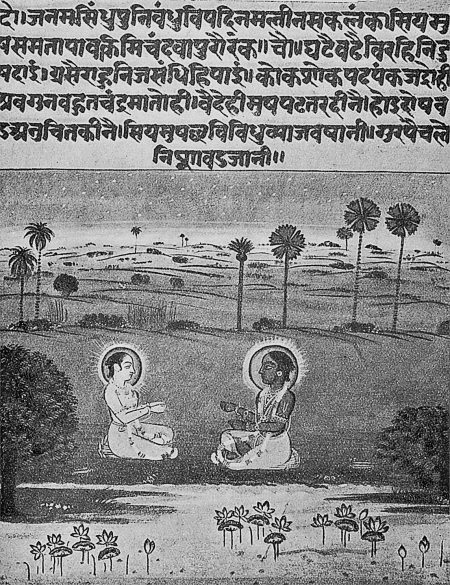 दो। जनमसिंधुपुनिवंधुविषदिनमलीनसकलंक। सियमु
षसमतापावकिमिचंदवापुरौरंक॥ चौ॥ घटैवढैविरहिनिदु
षदाई। ग्रसैराहुनिजसंधिहिपाई। कोकशोकप्रदपंकजद्रोही
अवगुनवहुतचंद्रमातोही। वैदेहीमुषपटतरदीनै। होइदोषव
डअनुचितकीनै। सियमुषछविविधुव्याजवषानी। गुरपैचले
निशावडजानी॥